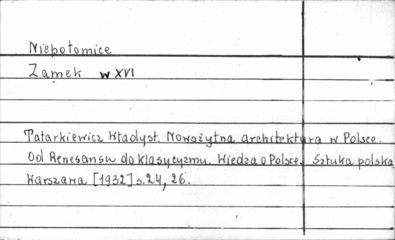 Niepołomice
Zamek w XVI
Tatarkiewicz Władyst. Nowożytna architektura w Polsce.
Od Renesansu do klasycyzmu. Wiedza o Polsce. Sztuka polska
Warszawa [1932] s. 24, 26.